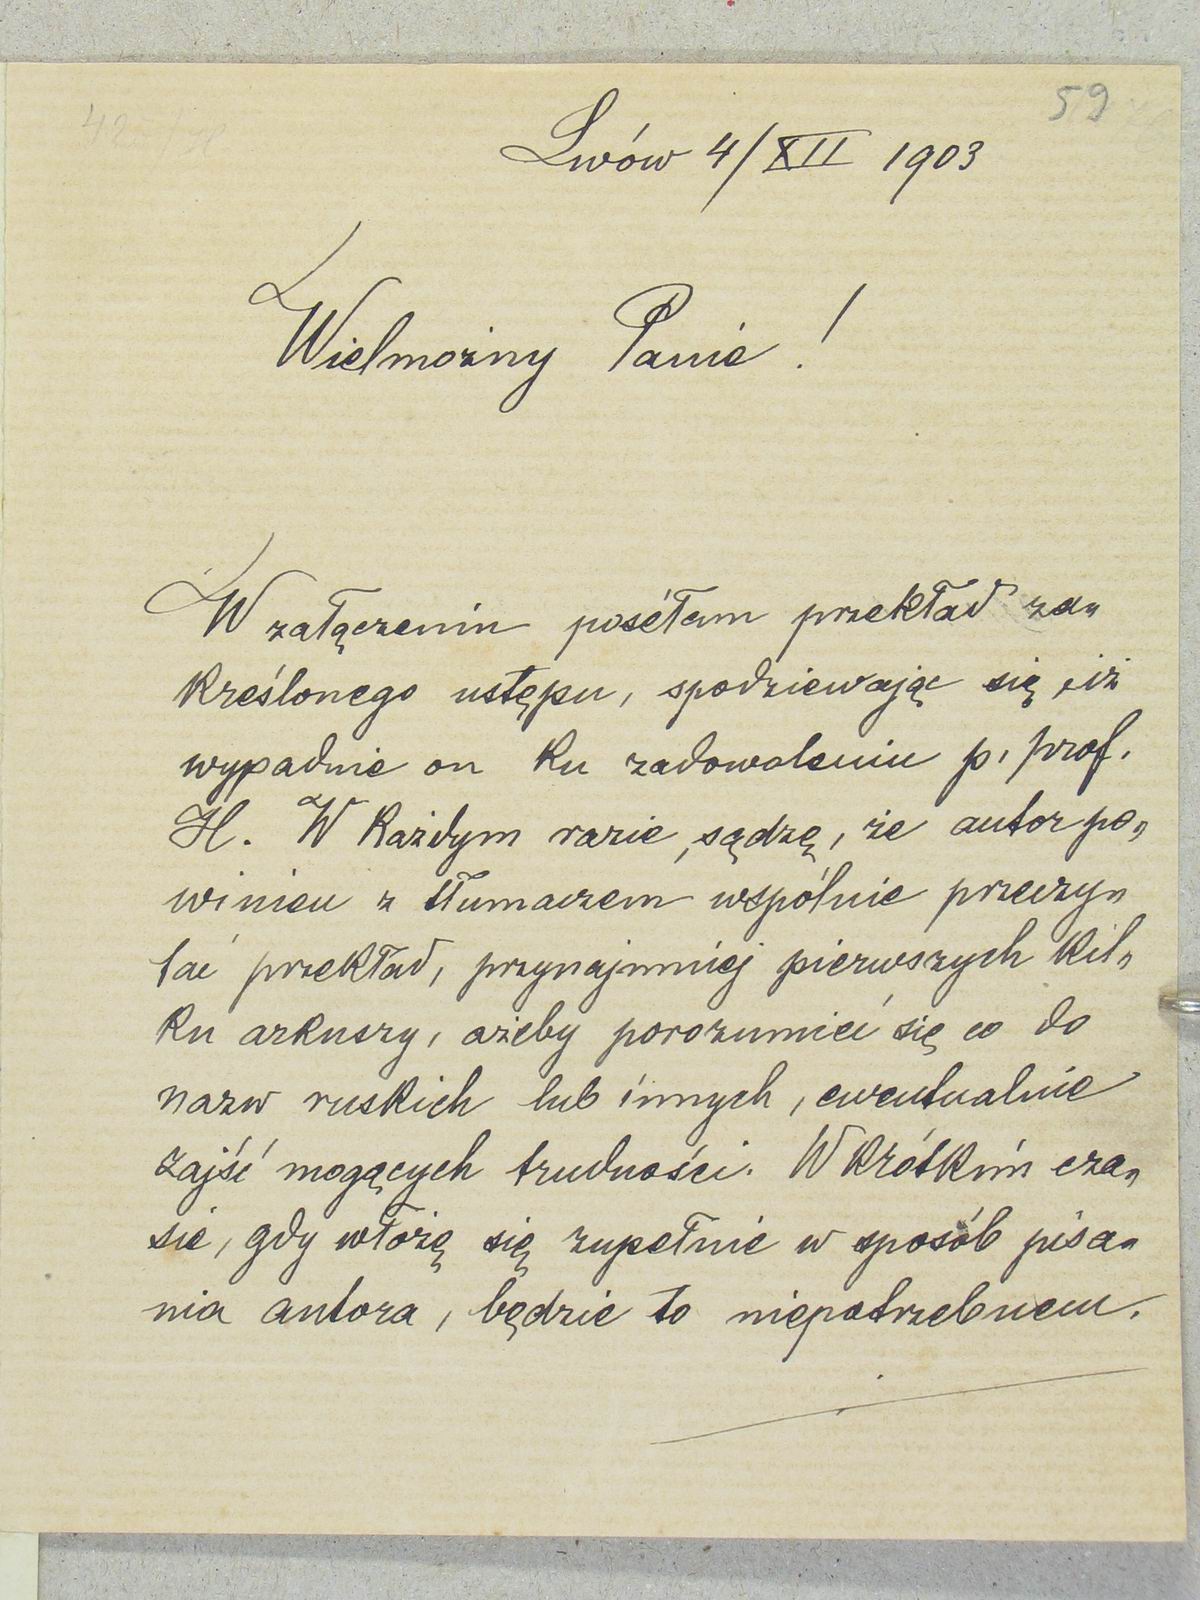 59
Lwów 4/XII 1903
Wielmożny Panie!
W załączeniu posełam przekład za„
kreślonego ustępu, spodziewając się, iż
wypadnie on ku zadowoleniu p. prof.
H. W każdym razie, sądzę, że autor po„
winien z tłumaczem wspólnie przeczy„
tać przekład, przynajmniej pierwszych kil„
ku arkuszy, ażeby porozumieć się co do
nazw ruskich lub innych, ewentualnie
zajść mogących trudności. W krótkim cza„
sie, gdy włożę się zupełnie w sposób pisa„
nia autora, będzie to niepotrzebnem.